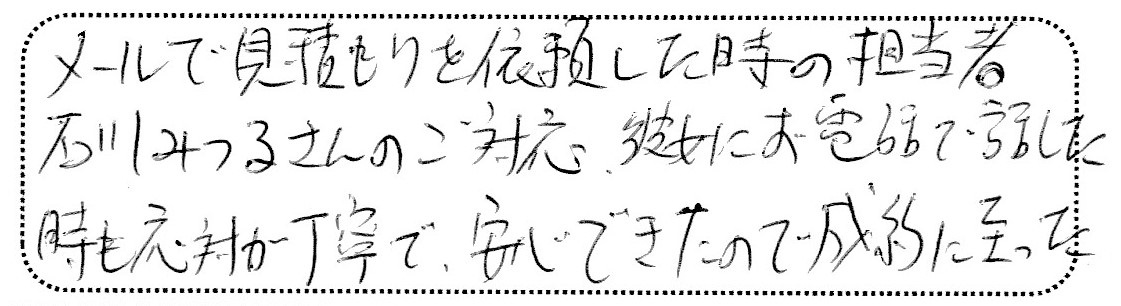 メールで見積もりを依頼した時の担当者
石川みつるさんのご対応、彼女にお電話で話した
時も応対が丁寧で、安心できたので成約に至った